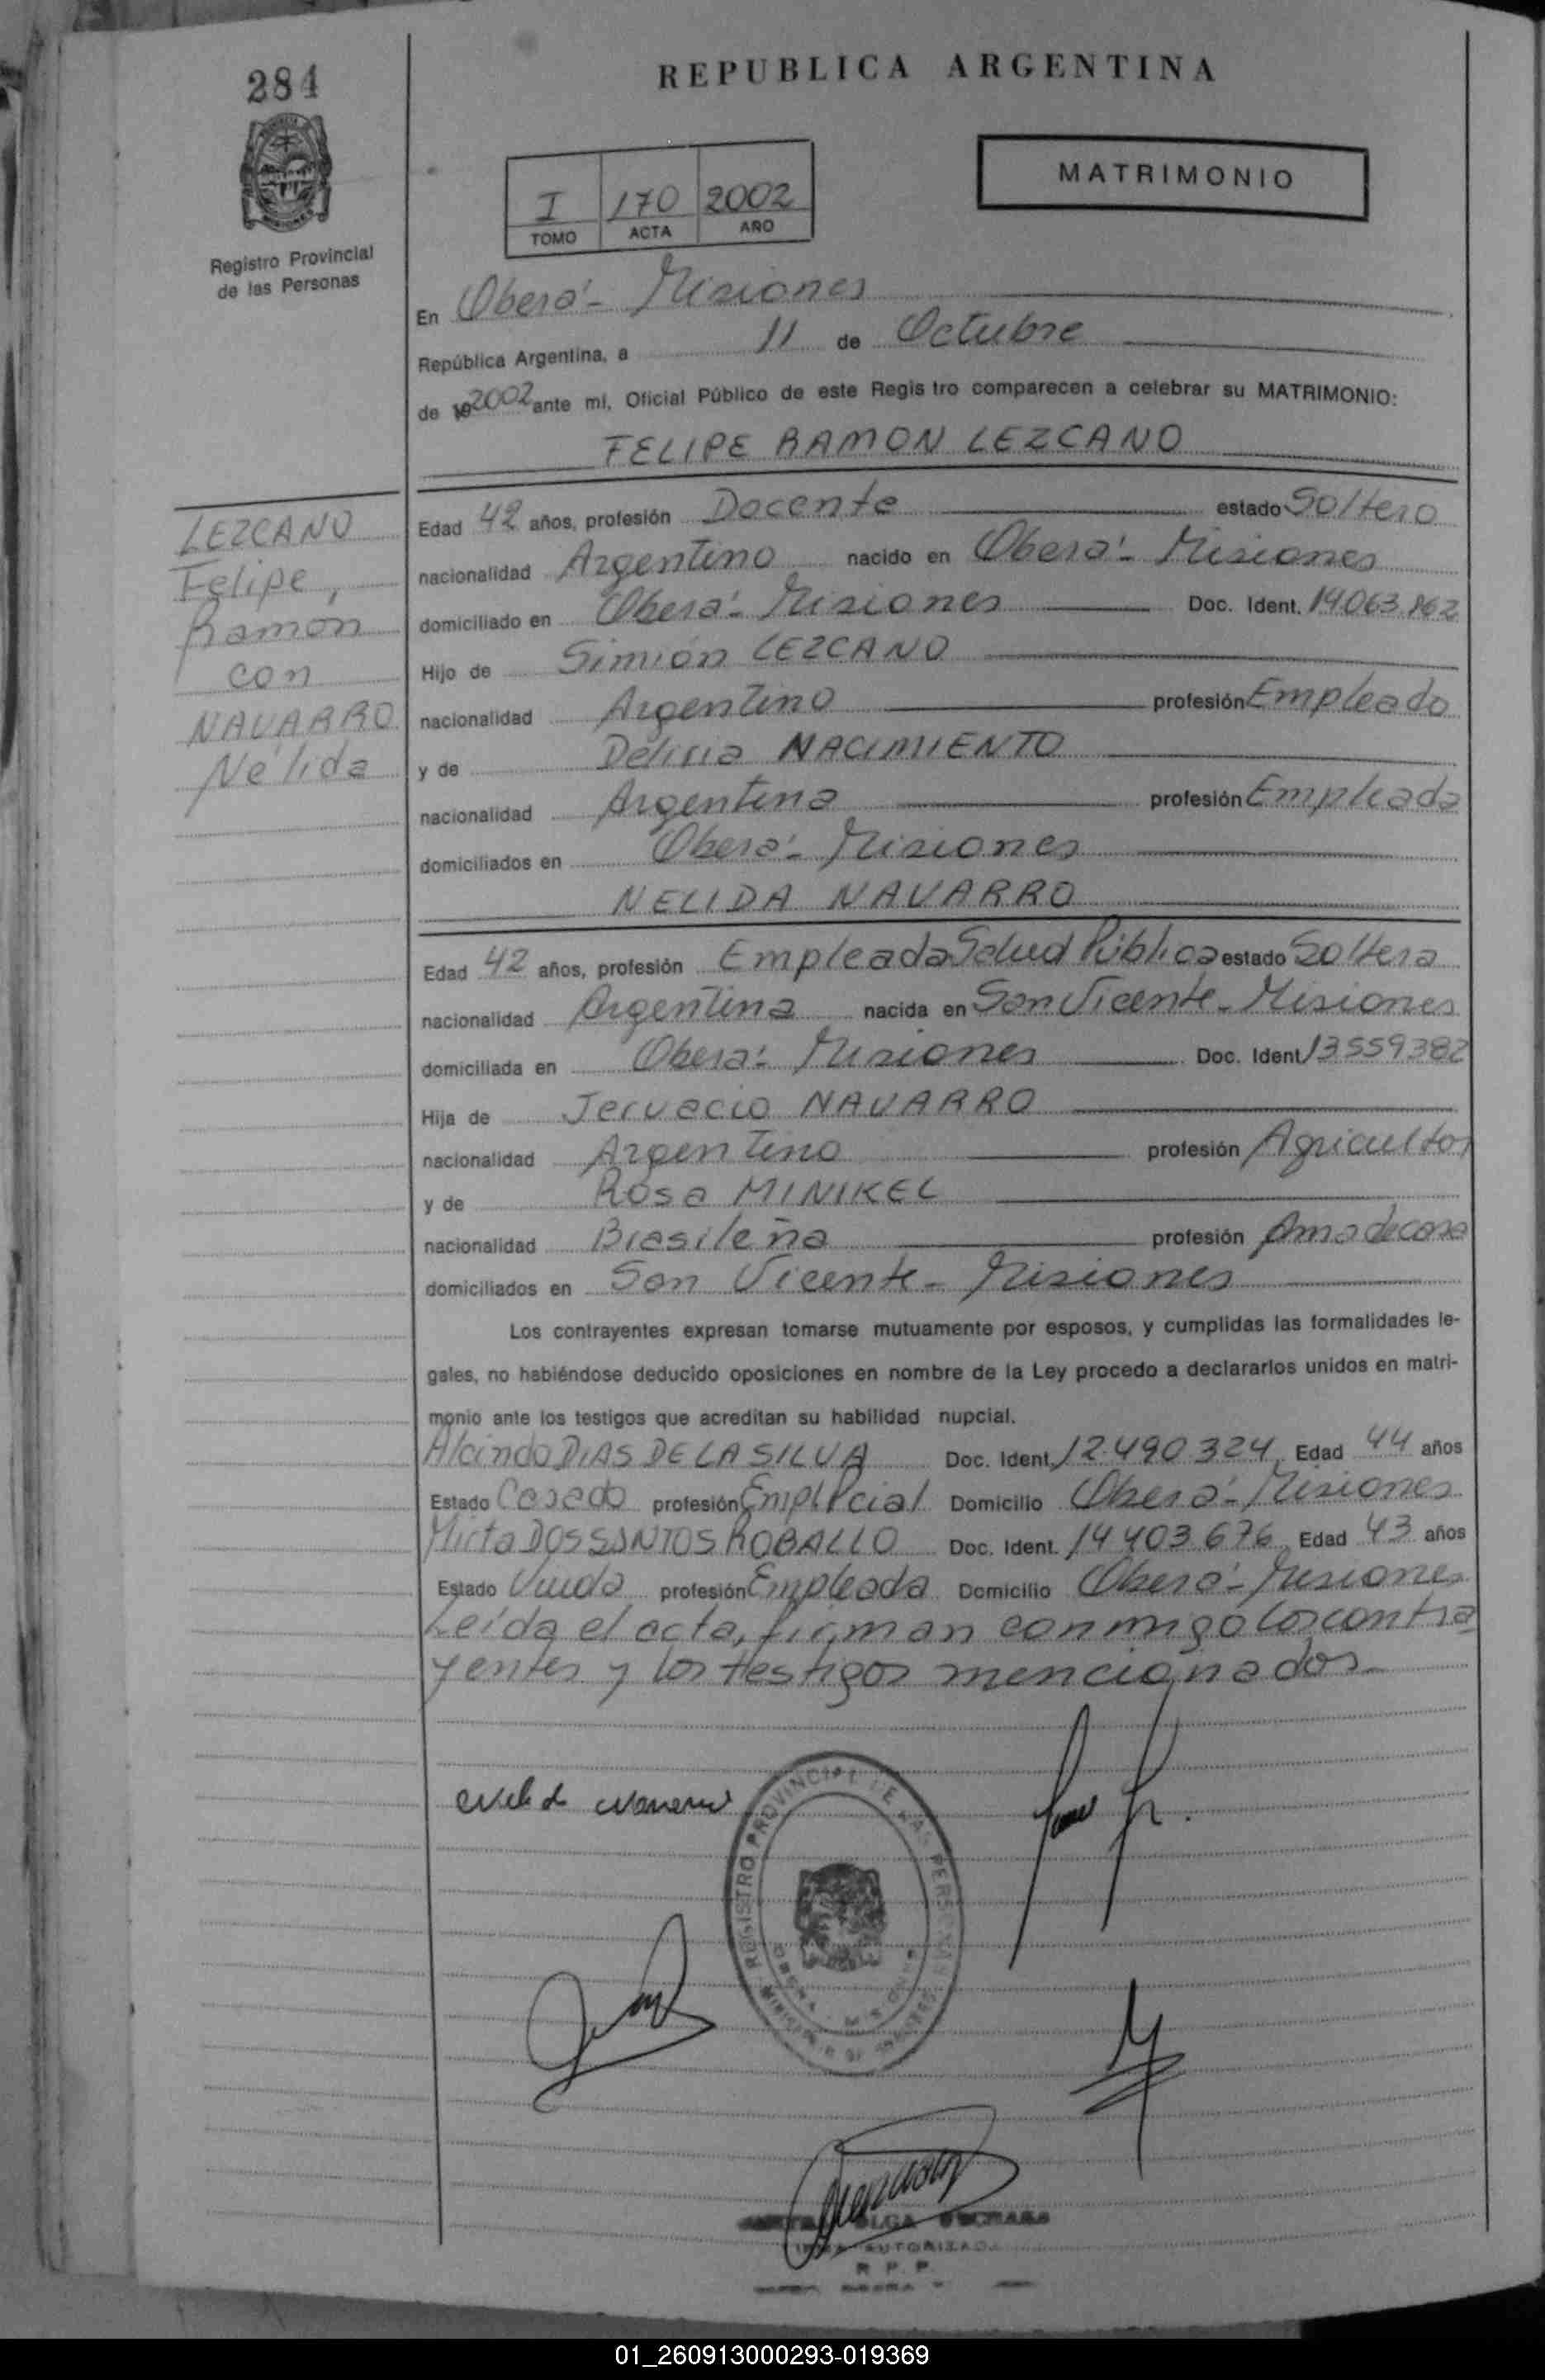 284
REPUBLICA ARGENTINA
MATRIMONIO
I 170 2002
TOMO ACTA AÑO
Registro Provincial
de las Personas
En Oberá - Misiones
República Argentina, a 11 de Octubre
de 192002 ante mi, Oficial Público de este Regis tro comparecen a celebrar su MATRIMONIO:
FELIPE RAMON LEZCANO
LEZCANO
Felipe,
Ramon
con
NAVARRO
Nélida
Edad 42 años, profesión Docente estado Soltero
nacionalidad Argentino nacido en Oberá - Misiones
domiciliado en Oberá - Misiones Doc. Ident. 14.063.862
Hijo de Simión LEZCANO
nacionalidad Argentino profesión Empleado
y de NACIMIENTO
nacionalidad Argentina profesión Empleada
domiciliados en Oberá - Misiones
NELIDA NAVARRO
Edad 42 años, profesión Empleada Salud Pública estado Soltera
nacionalidad Argentina nacida en San Vicente - Misiones
domiciliada en Oberá - Misiones Doc. Ident 13559382
Hija de Jervacio NAVARRO
nacionalidad Argentino profesión Agricultor
y de Rosa MINIKEL
nacionalidad Brasileña profesión Ama de casa
domiciliados en San Vicente - Misiones
Los contrayentes expresan tomarse mutuamente por esposos, y cumplidas las formalidades le-
gales, no habiéndose deducido oposiciones en nombre de la Ley procedo a declararlos unidos en matri-
monio ante los testigos que acreditan su habilidad nupcial.
Alcindo DIAS DE LA SILVA Doc. Ident. 12.490.324, Edad 44 años
Estado Casado profesión Domicilio Oberá - Misiones
Mirta DOS SANTOS ROBALLO Doc. Ident. 14403.676, Edad 43 años
Estado Viuda profesión Empleada Domicilio Oberá - Misiones
Leída el acta, firman conmigo los contra
yentes y los testigos mencionados.
REGISTRO PROVINCIAL DE LAS PERSONAS
OLGA
FIRMA AUTORIZADA
R. P. P.
01_260913000293-019369